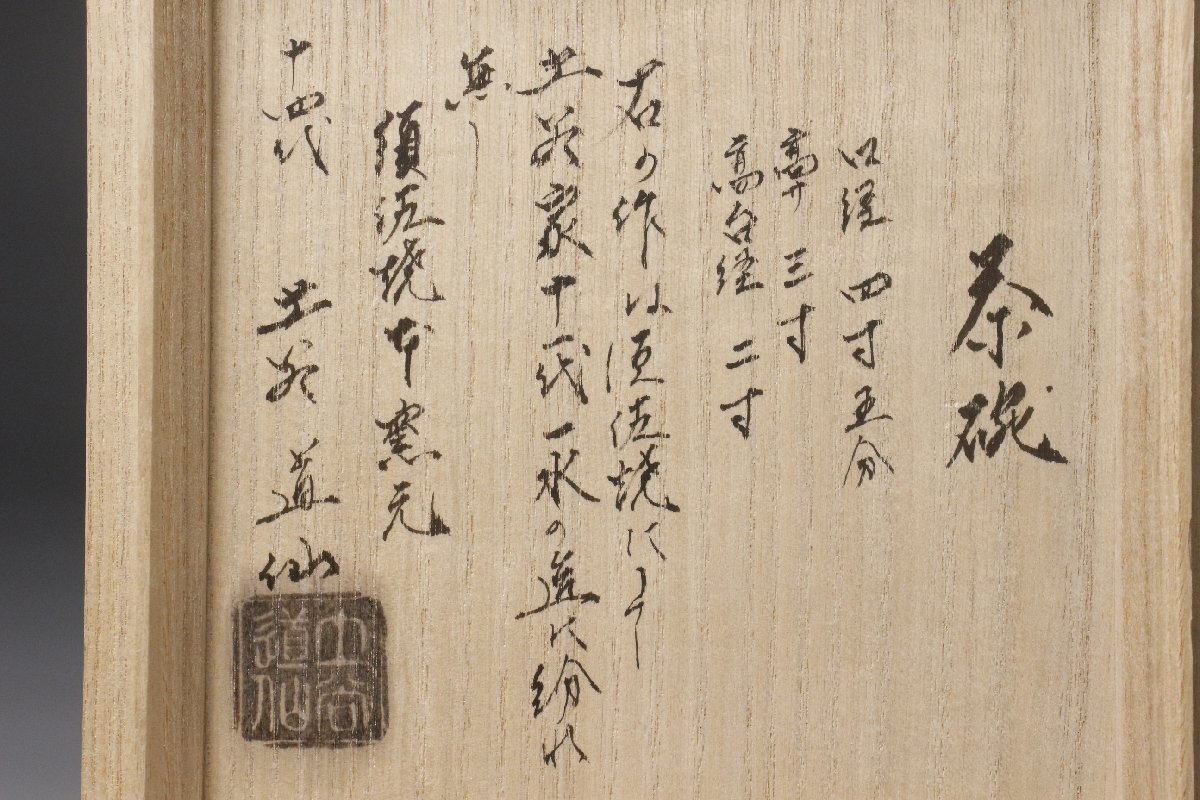 茶碗
口径 四寸五分
高サ 三寸
高台径 二寸
右の作は須佐焼にして
土谷家十一代一水の造に紛れ
無し
須佐焼本窯元
十四代 土谷道仙
土谷
道仙